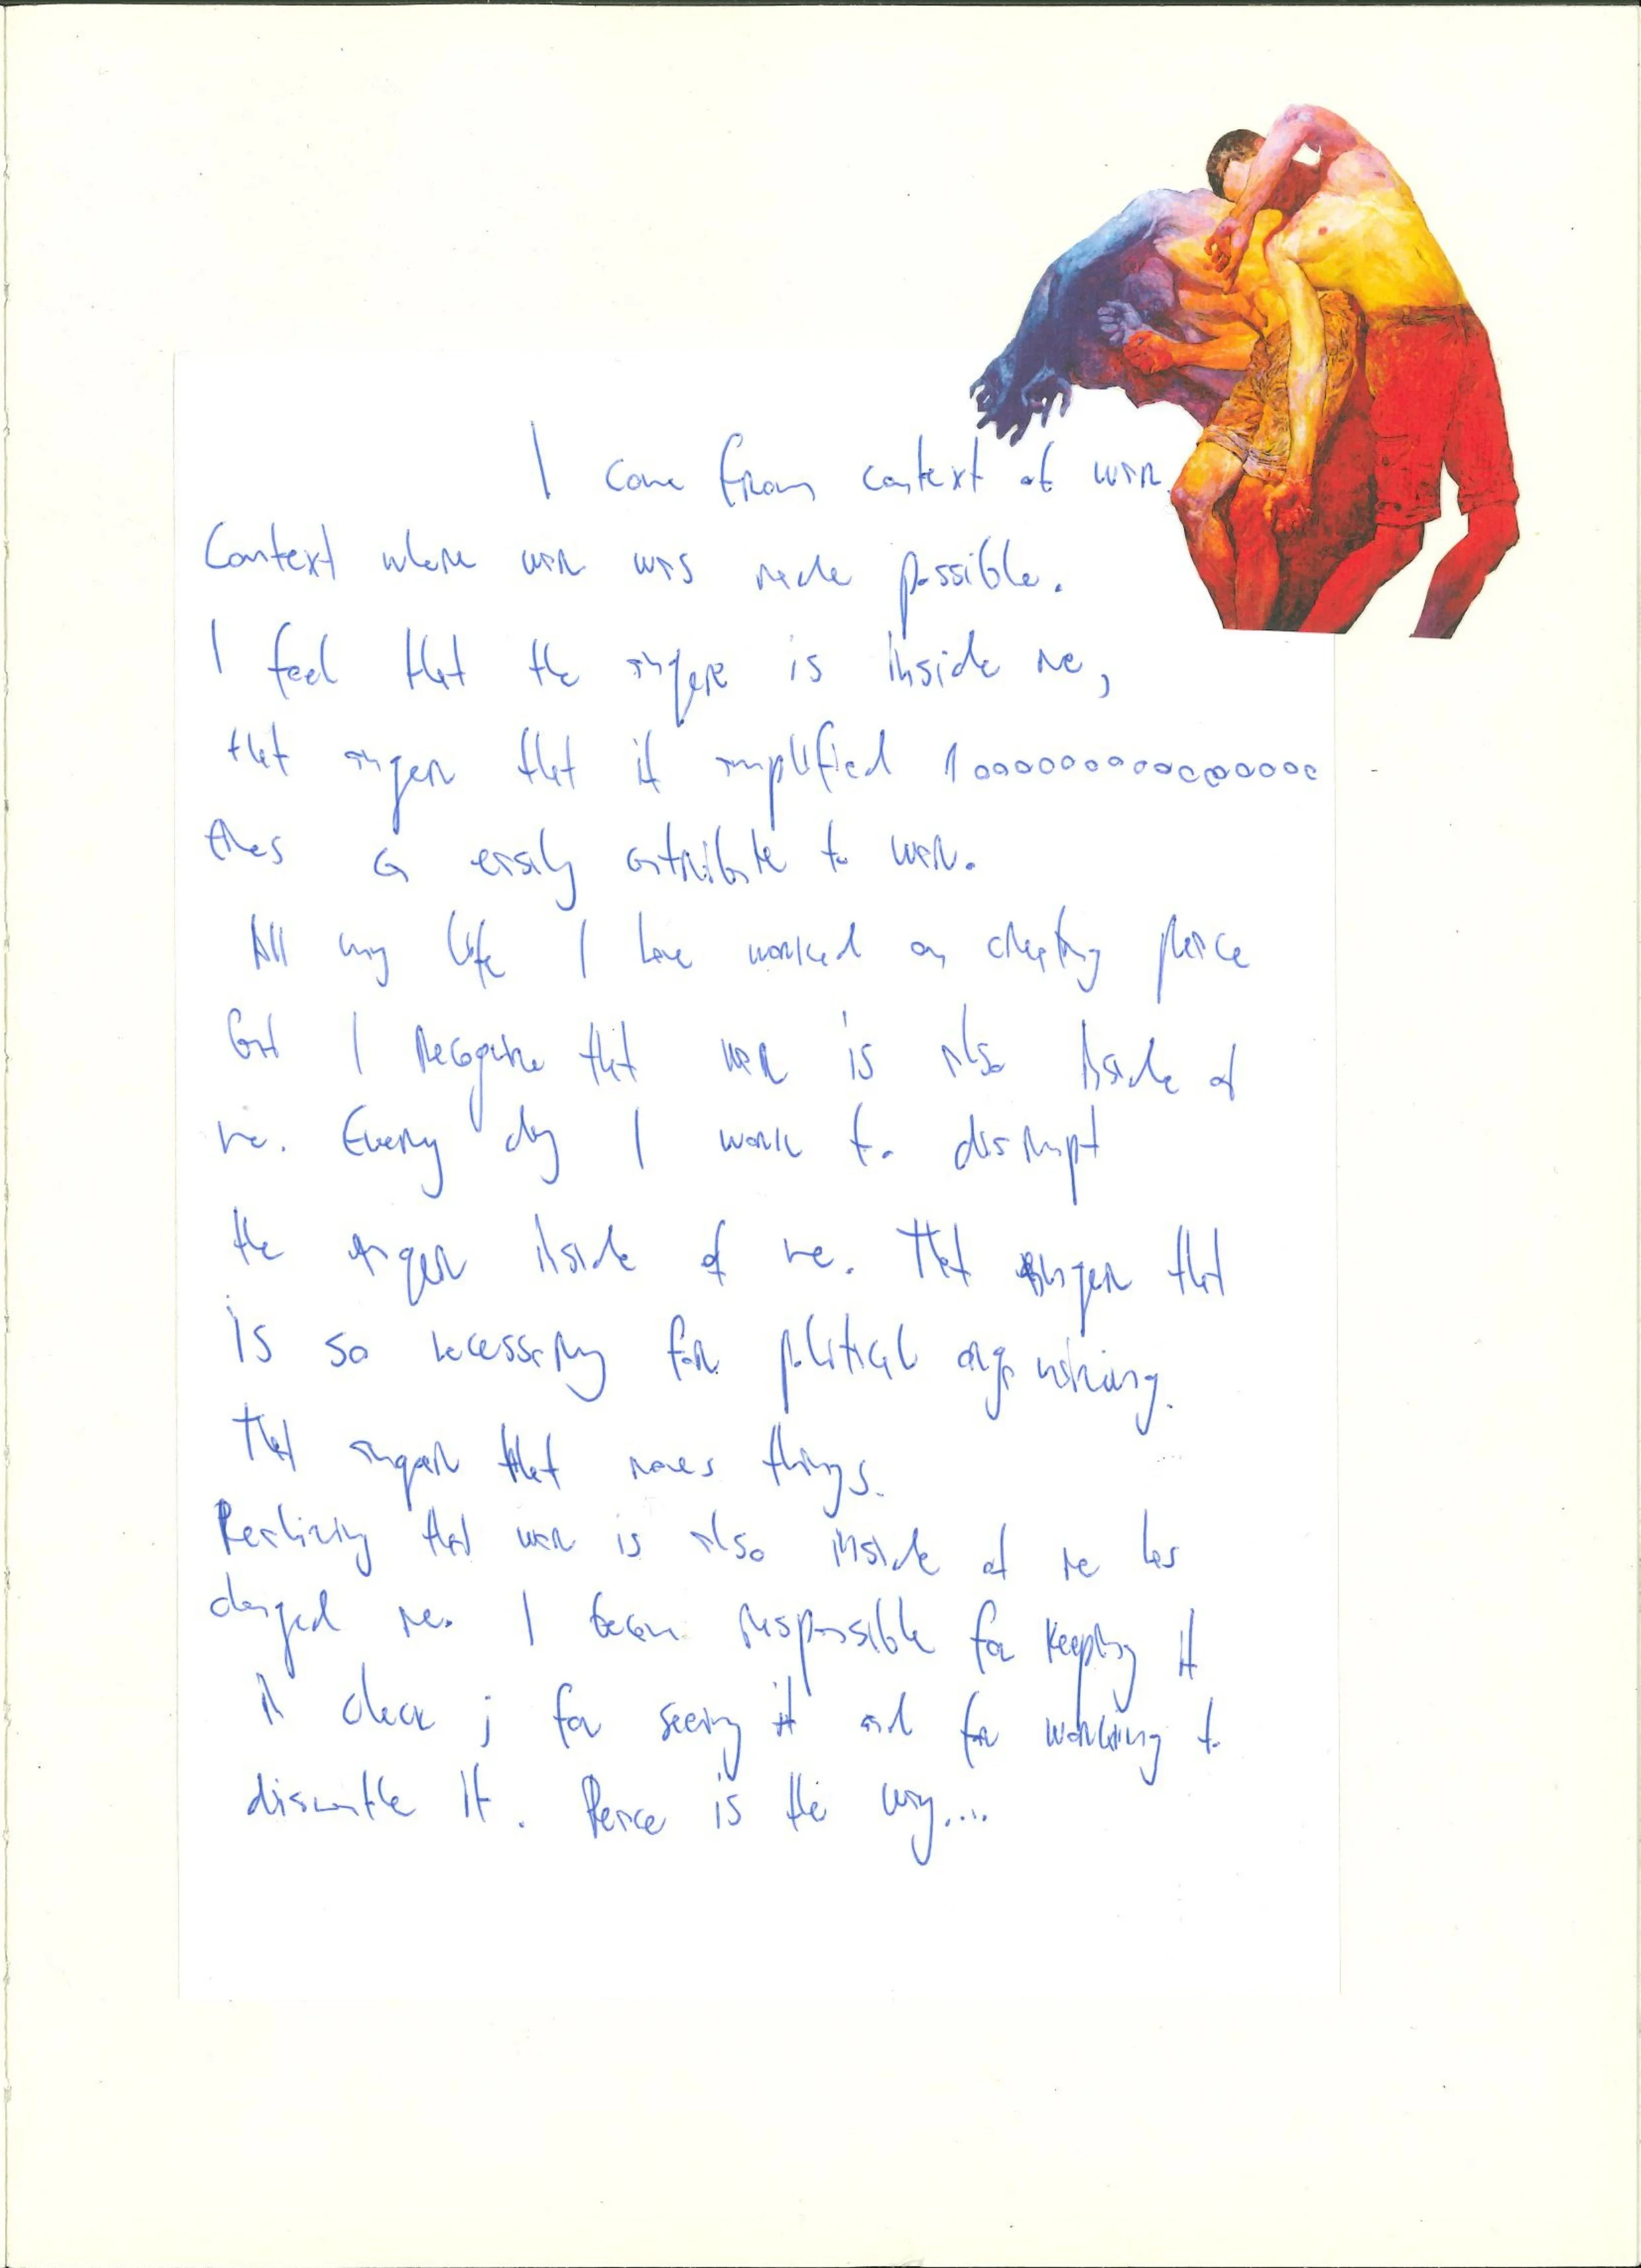 I come from context of war.
Context where war was made possible.
I feel that the anger is inside me,
that anger that if amplified 1000000000000000
times can easily contribute to war.
All my life I have worked on creating peace
but I recognize that war is also inside of
me. Every day I work to disrupt
the anger inside of me. That anger that
is so necessary for political organising.
That anger that moves things.
Realizing that war is also inside of me has
changed me. I became responsible for keeping it
in check; for seeing it and for working to
dismantle it. Peace is the way....